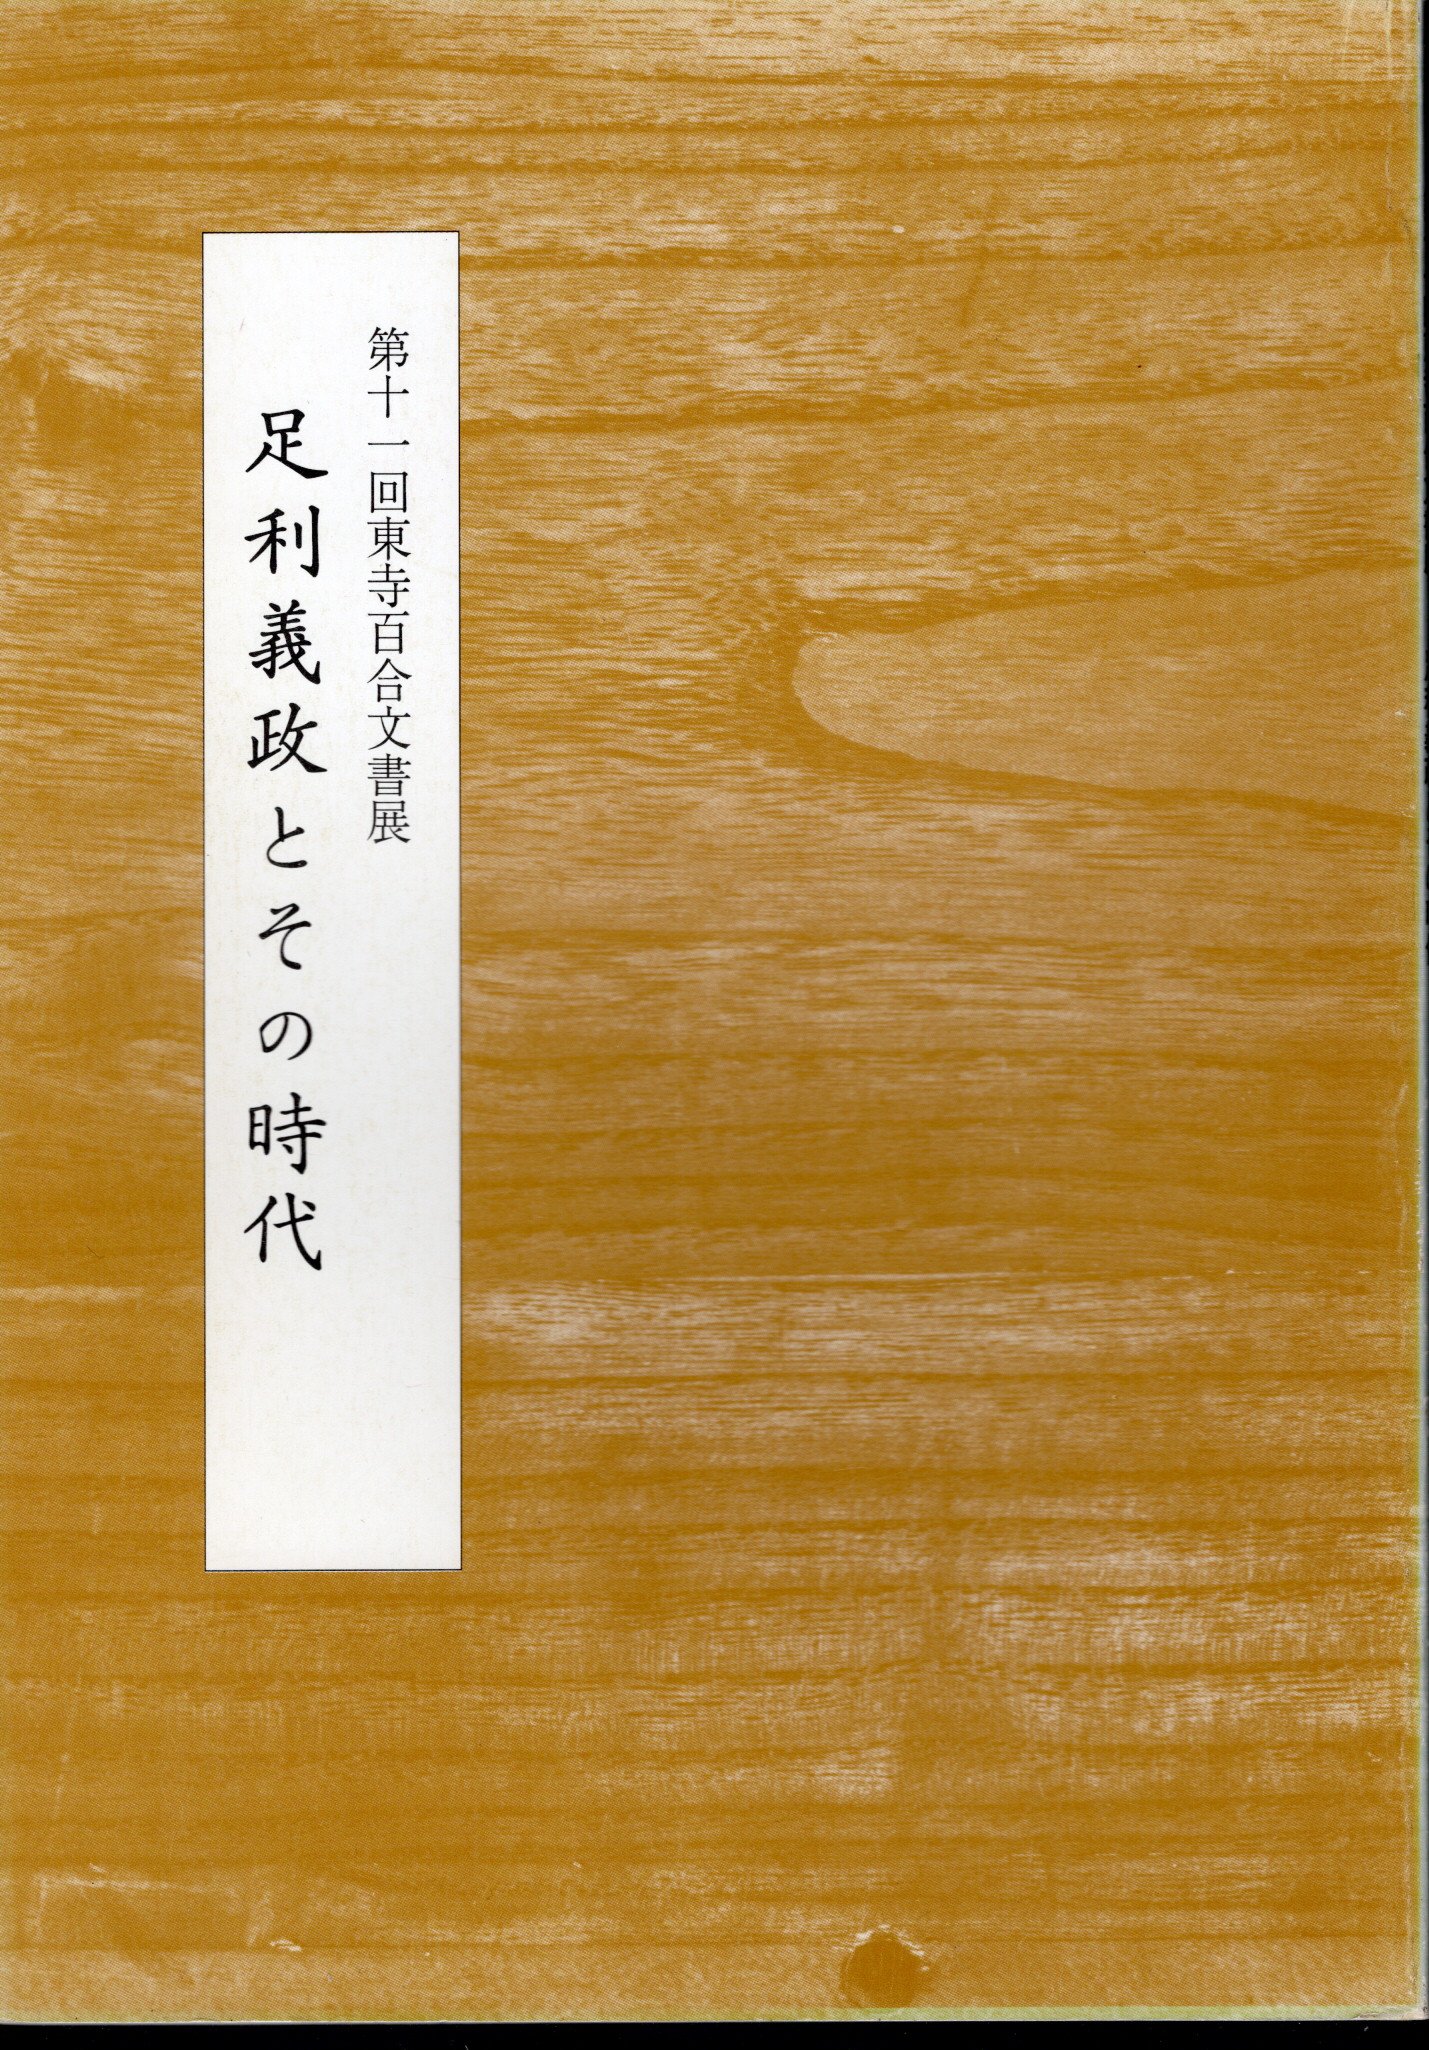 第十一回東寺百合文書展
足利義政とその時代